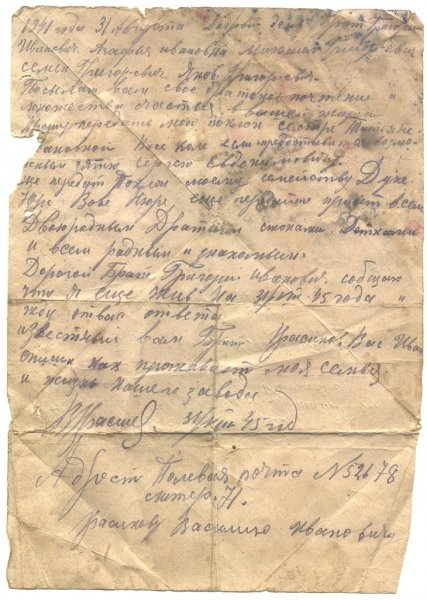 31 Августа Добрый день Брат Григорий
Иванович Агафья ивановна Михаил Григорьевич
семен Григорьевич Яков Григорьевич
Посылаю вам свое братское почтение и
множества счастья в вашей жизни
Прошу передать мой поклон сестре Татьяне
если предоставится
зятю сергею
еще передут Поклон моему семейству Дуне
Юре Вове Нюре еще передайте привет всем
Двоюродным Братьям
и всем родным и знакомым.
Дорогой Брат Григорий иванович. собщаю
что я еще жив на 31/VIII 45 года и
жду от вас ответа
известный вам Брат Красиков Вас Иван
опиши как проживает моя семья
и жизнь нашего завода
31/VIII 45 год
Адрест Полевая почта N 52678
литер. И.
Красикову Василию Ивановичу